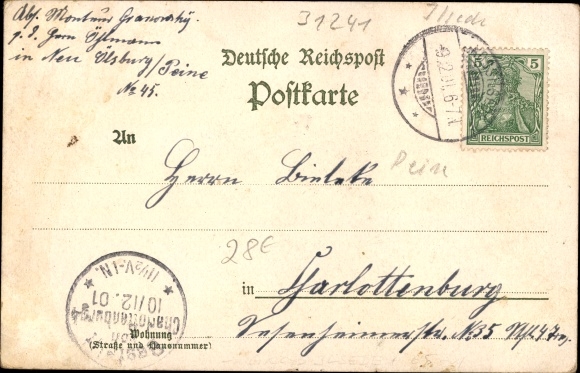 Abs. Monteur Granowsky.
p. D. Herrn Öhlmann
in Neu Ölsburg/Peine
No 45.
31241
Deutsche Reichspost
Postkarte
5
REICHSPOST
An
Herrn Bieleke
Pein
28€
in Charlottenburg
Sesenheimerstr. No 35
11½-12V.
10/12.01
Charlottenburg
Wohnung
(Straße und Hausnummer)